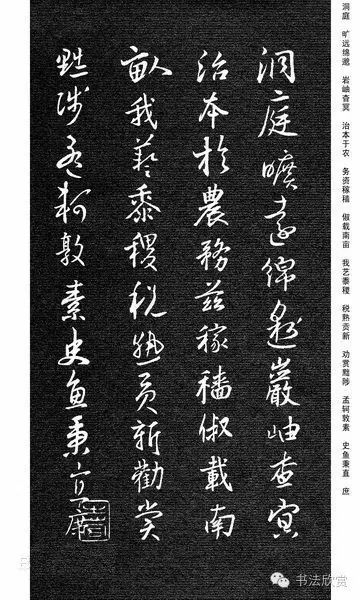 洞庭 旷远绵邈 岩岫杳冥 治本于农 务资稼穑 俶载南亩 我艺黍稷 税熟贡新 劝赏黜陟 孟轲敦素 史鱼秉直 庶
洞庭曠遠綿邈巖岫杳冥
治本於農務茲稼穡俶載南
畝我藝黍稷稅熟貢新勸賞
黜陟孟軻敦素史魚秉直庶
书法欣赏